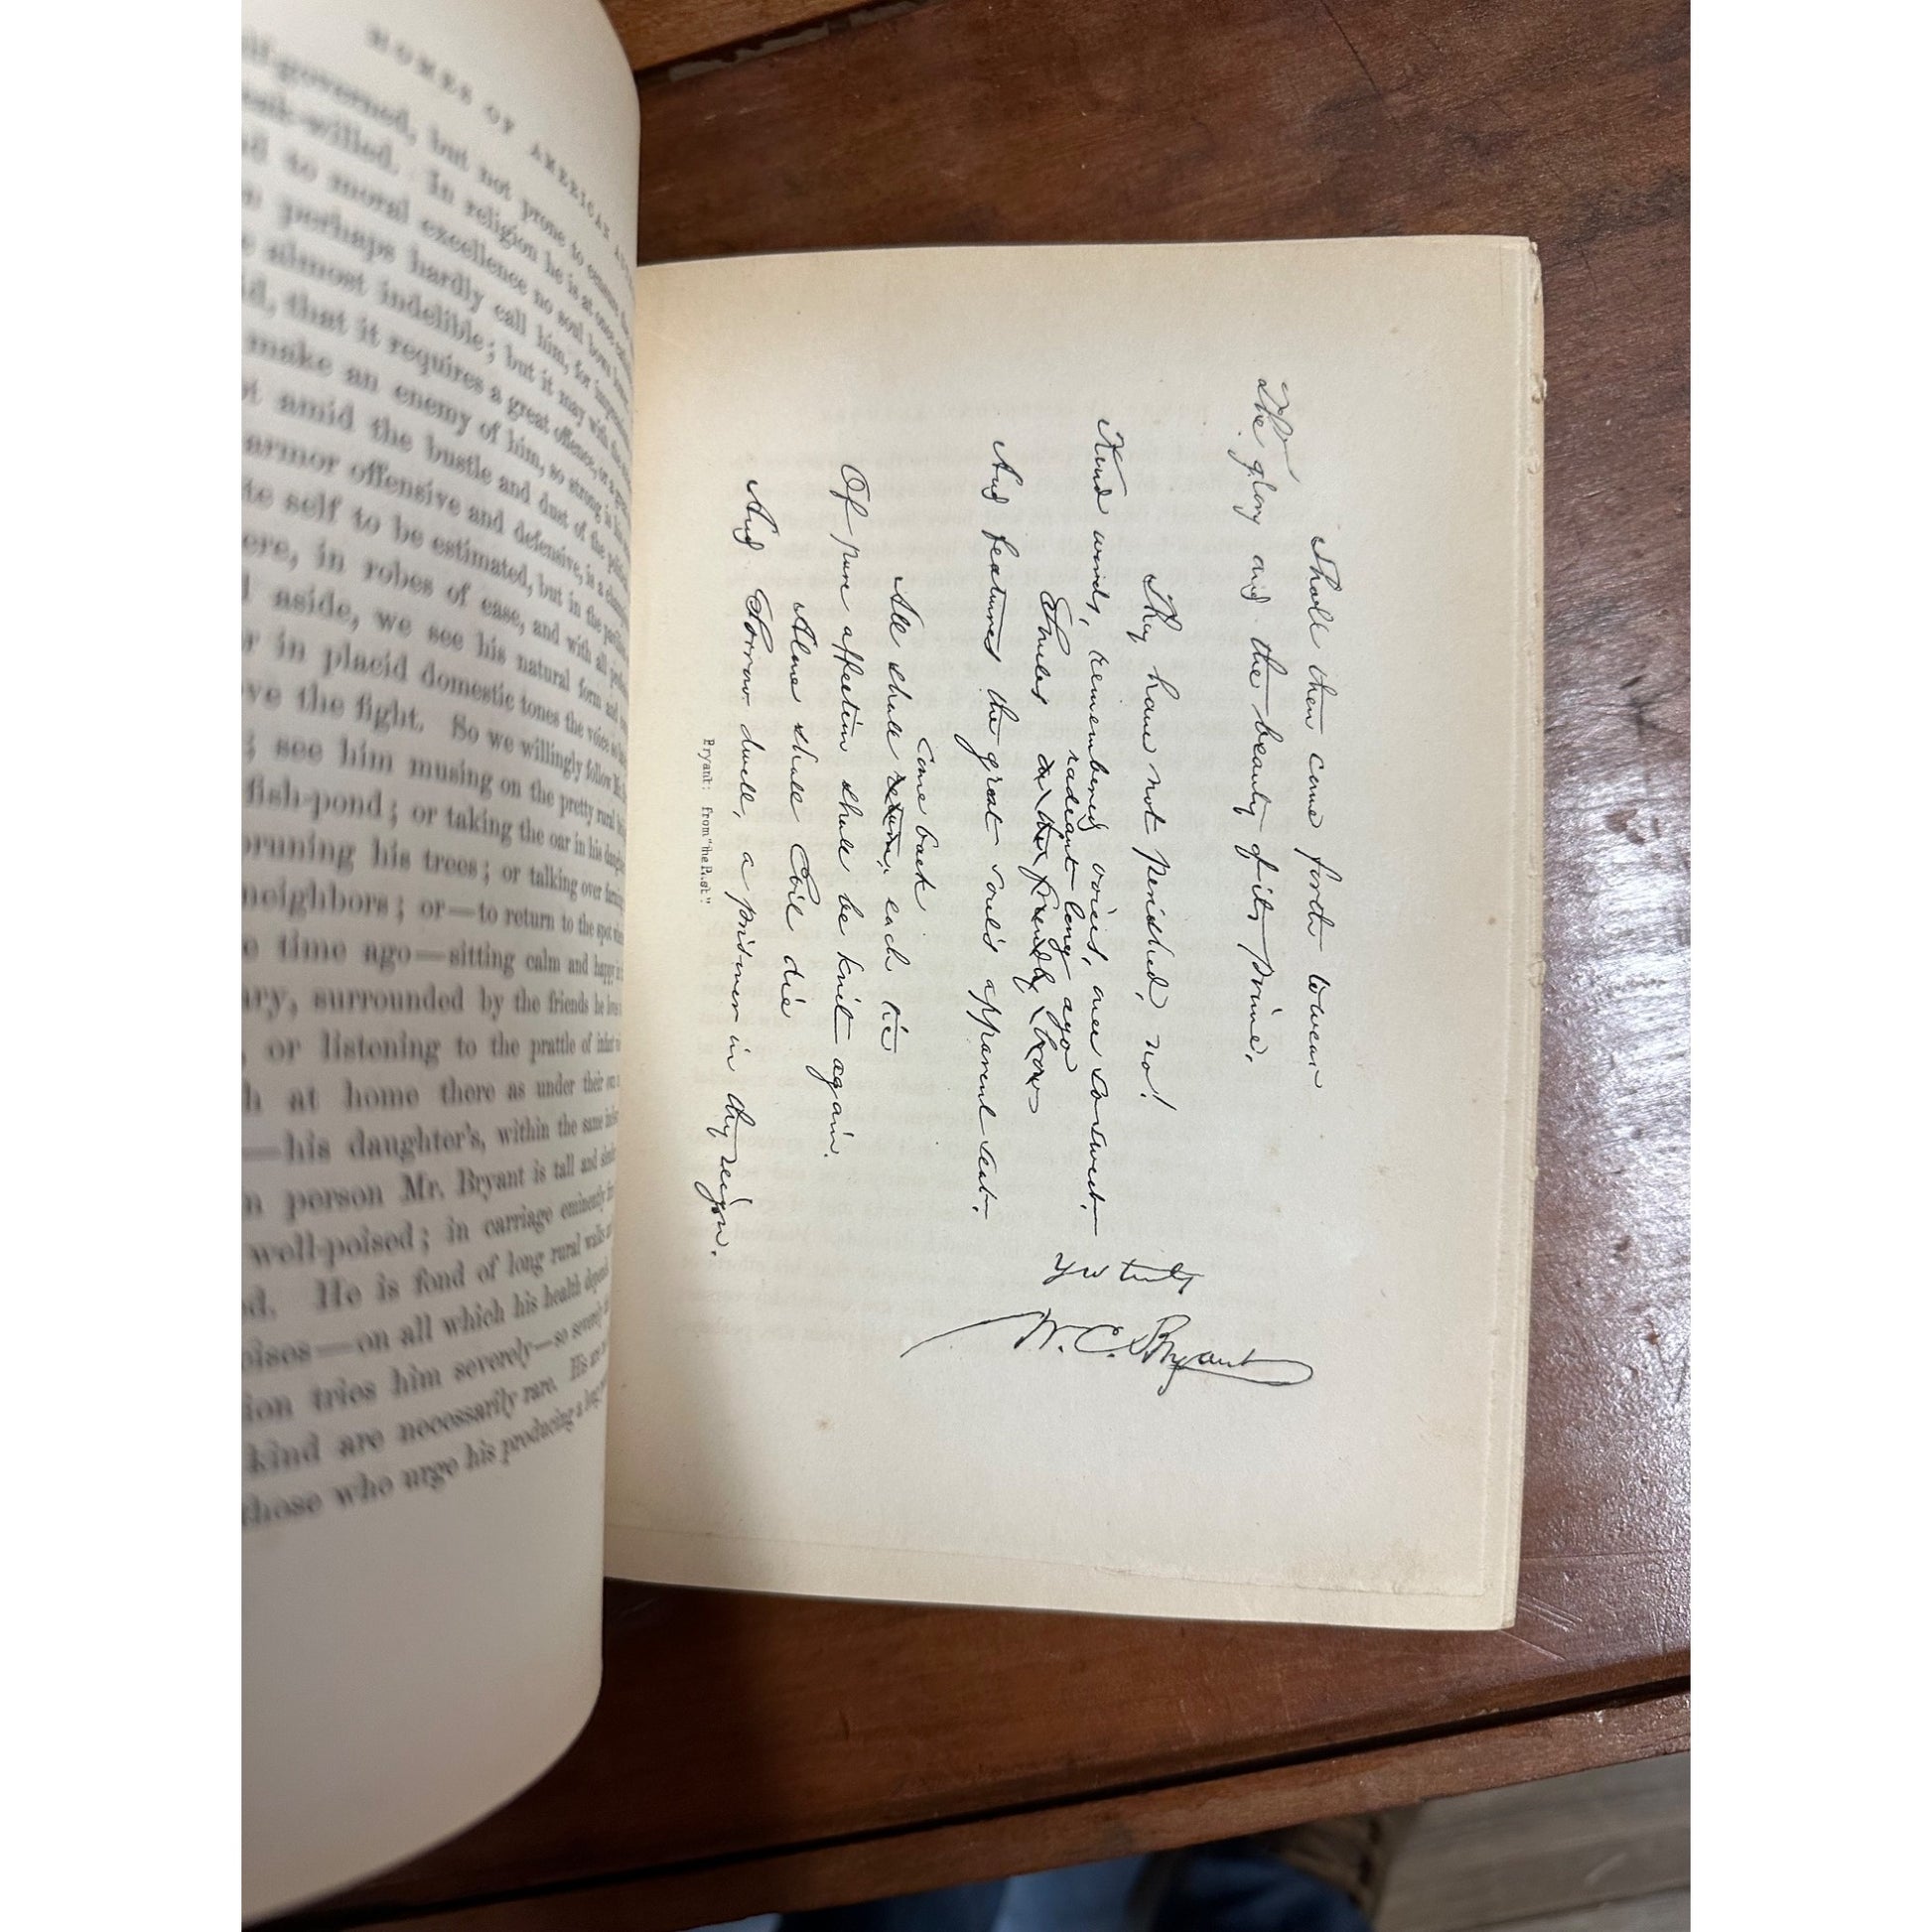 HOMES OF AMERICAN
governed, but not prone to censure the
willed. In religion he is at once
to moral excellence no soul bows lower
perhaps hardly call him, for
almost indelible; but it may with
that it requires a great offence, or a
make an enemy of him, so strong is his
amid the bustle and dust of the
armor offensive and defensive, is a
self to be estimated, but in the
in robes of ease, and with all
aside, we see his natural form and
in placid domestic tones the voice
the fight. So we willingly follow
see him musing on the pretty rural
fish-pond; or taking the oar in his
pruning his trees; or talking over
neighbors; or—to return to the spot
time ago—sitting calm and happy
surrounded by the friends he
or listening to the prattle of
at home there as under their own
—his daughter's, within the same
person Mr. Bryant is tall and
well-poised; in carriage eminently
He is fond of long rural walks
—on all which his health
tries him severely—so severely
kind are necessarily rare. His
those who urge his producing a long
Shall then come forth to wear
The glory and the beauty of its prime.
They have not perished, no!
Kind words, remembered voices, once so sweet.
radeant long ago
Smiles on the friendly brow
And features the great soul's apparent seat.
Come back
All shall return, each tie
Of pure affection shall be knit again.
Alone shall Evil die
And Sorrow dwell, a prisoner in thy reign.
Bryant: from "the Past".
yrs truly
W. C. Bryant